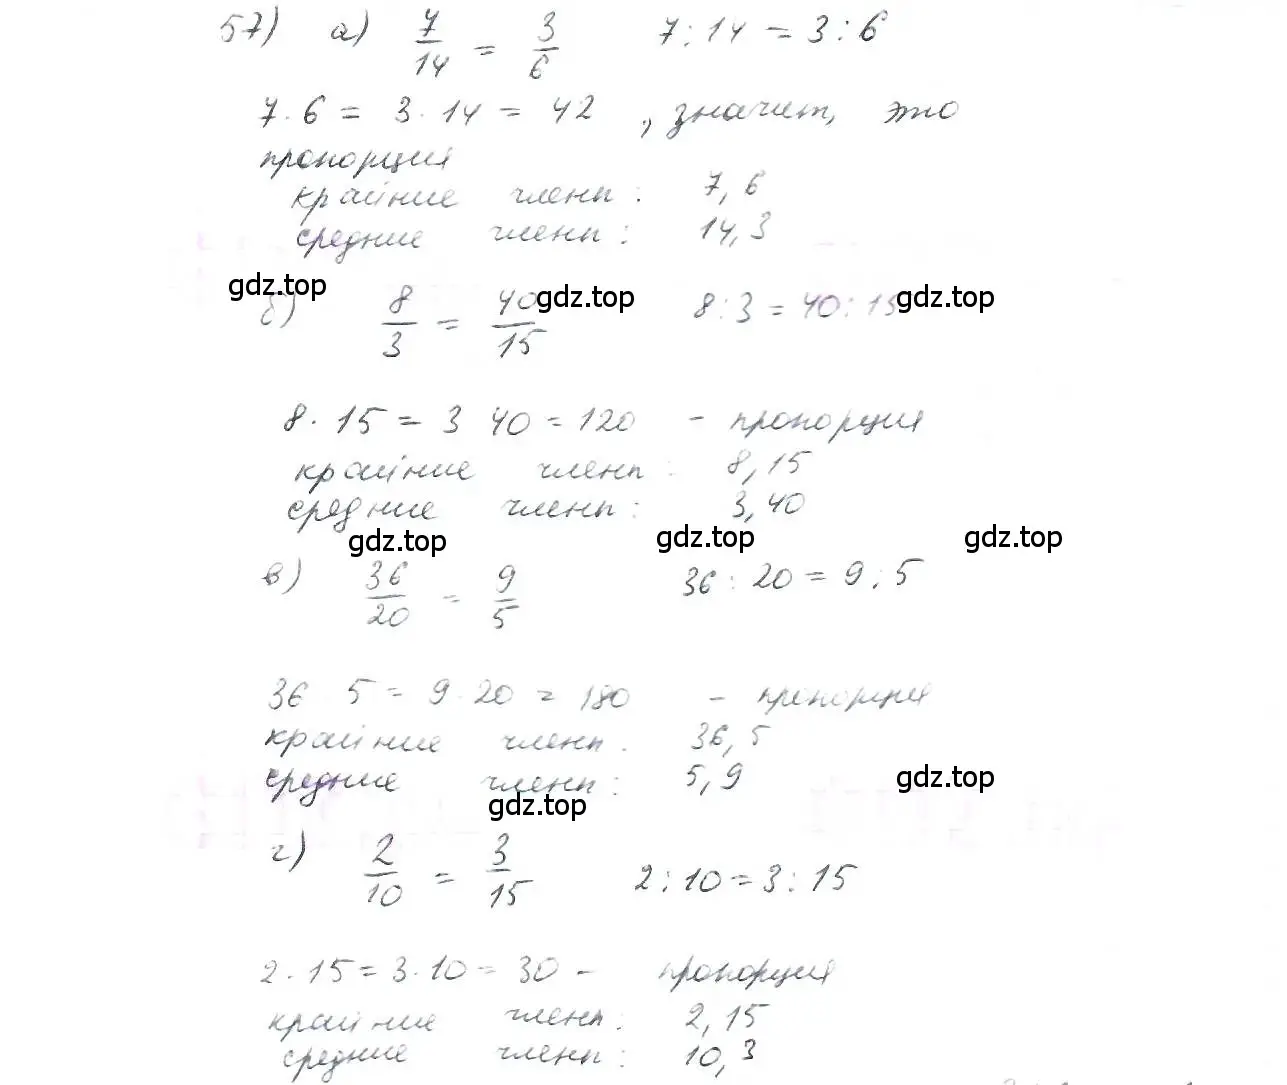 57) а) 7/14 = 3/6   7 : 14 = 3 : 6
7 · 6 = 3 · 14 = 42 , значит, это
пропорция
крайние члены : 7, 6
средние члены : 14, 3
gdz.top
б) 8/3 = 40/15   8 : 3 = 40 : 15
gdz.top
gdz.top
8 · 15 = 3 40 = 120 - пропорция
крайние члены : 8, 15
средние члены : 3, 40
gdz.top
gdz.top
gdz.top
в) 36/20 = 9/5   36 : 20 = 9 : 5
36 · 5 = 9 · 20 = 180 - пропорция
крайние члены : 36, 5
средние члены : 5, 9
gdz.top
gdz.top
г) 2/10 = 3/15   2 : 10 = 3 : 15
2 · 15 = 3 · 10 = 30 - пропорция
крайние члены : 2, 15
средние члены : 10, 3